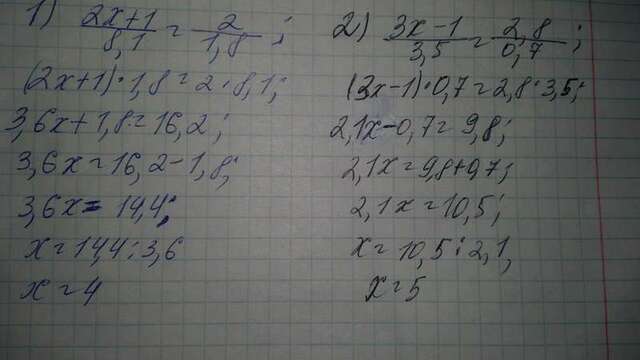 1) (2x+1)/8,1 = 2/1,8;
(2x+1)·1,8=2·8,1;
3,6x+1,8=16,2;
3,6x=16,2-1,8;
3,6x=14,4;
x=14,4:3,6
x=4
2) (3x-1)/3,5 = 2,8/0,7;
(3x-1)·0,7=2,8·3,5;
2,1x-0,7=9,8;
2,1x=9,8+0,7;
2,1x=10,5;
x=10,5:2,1,
x=5